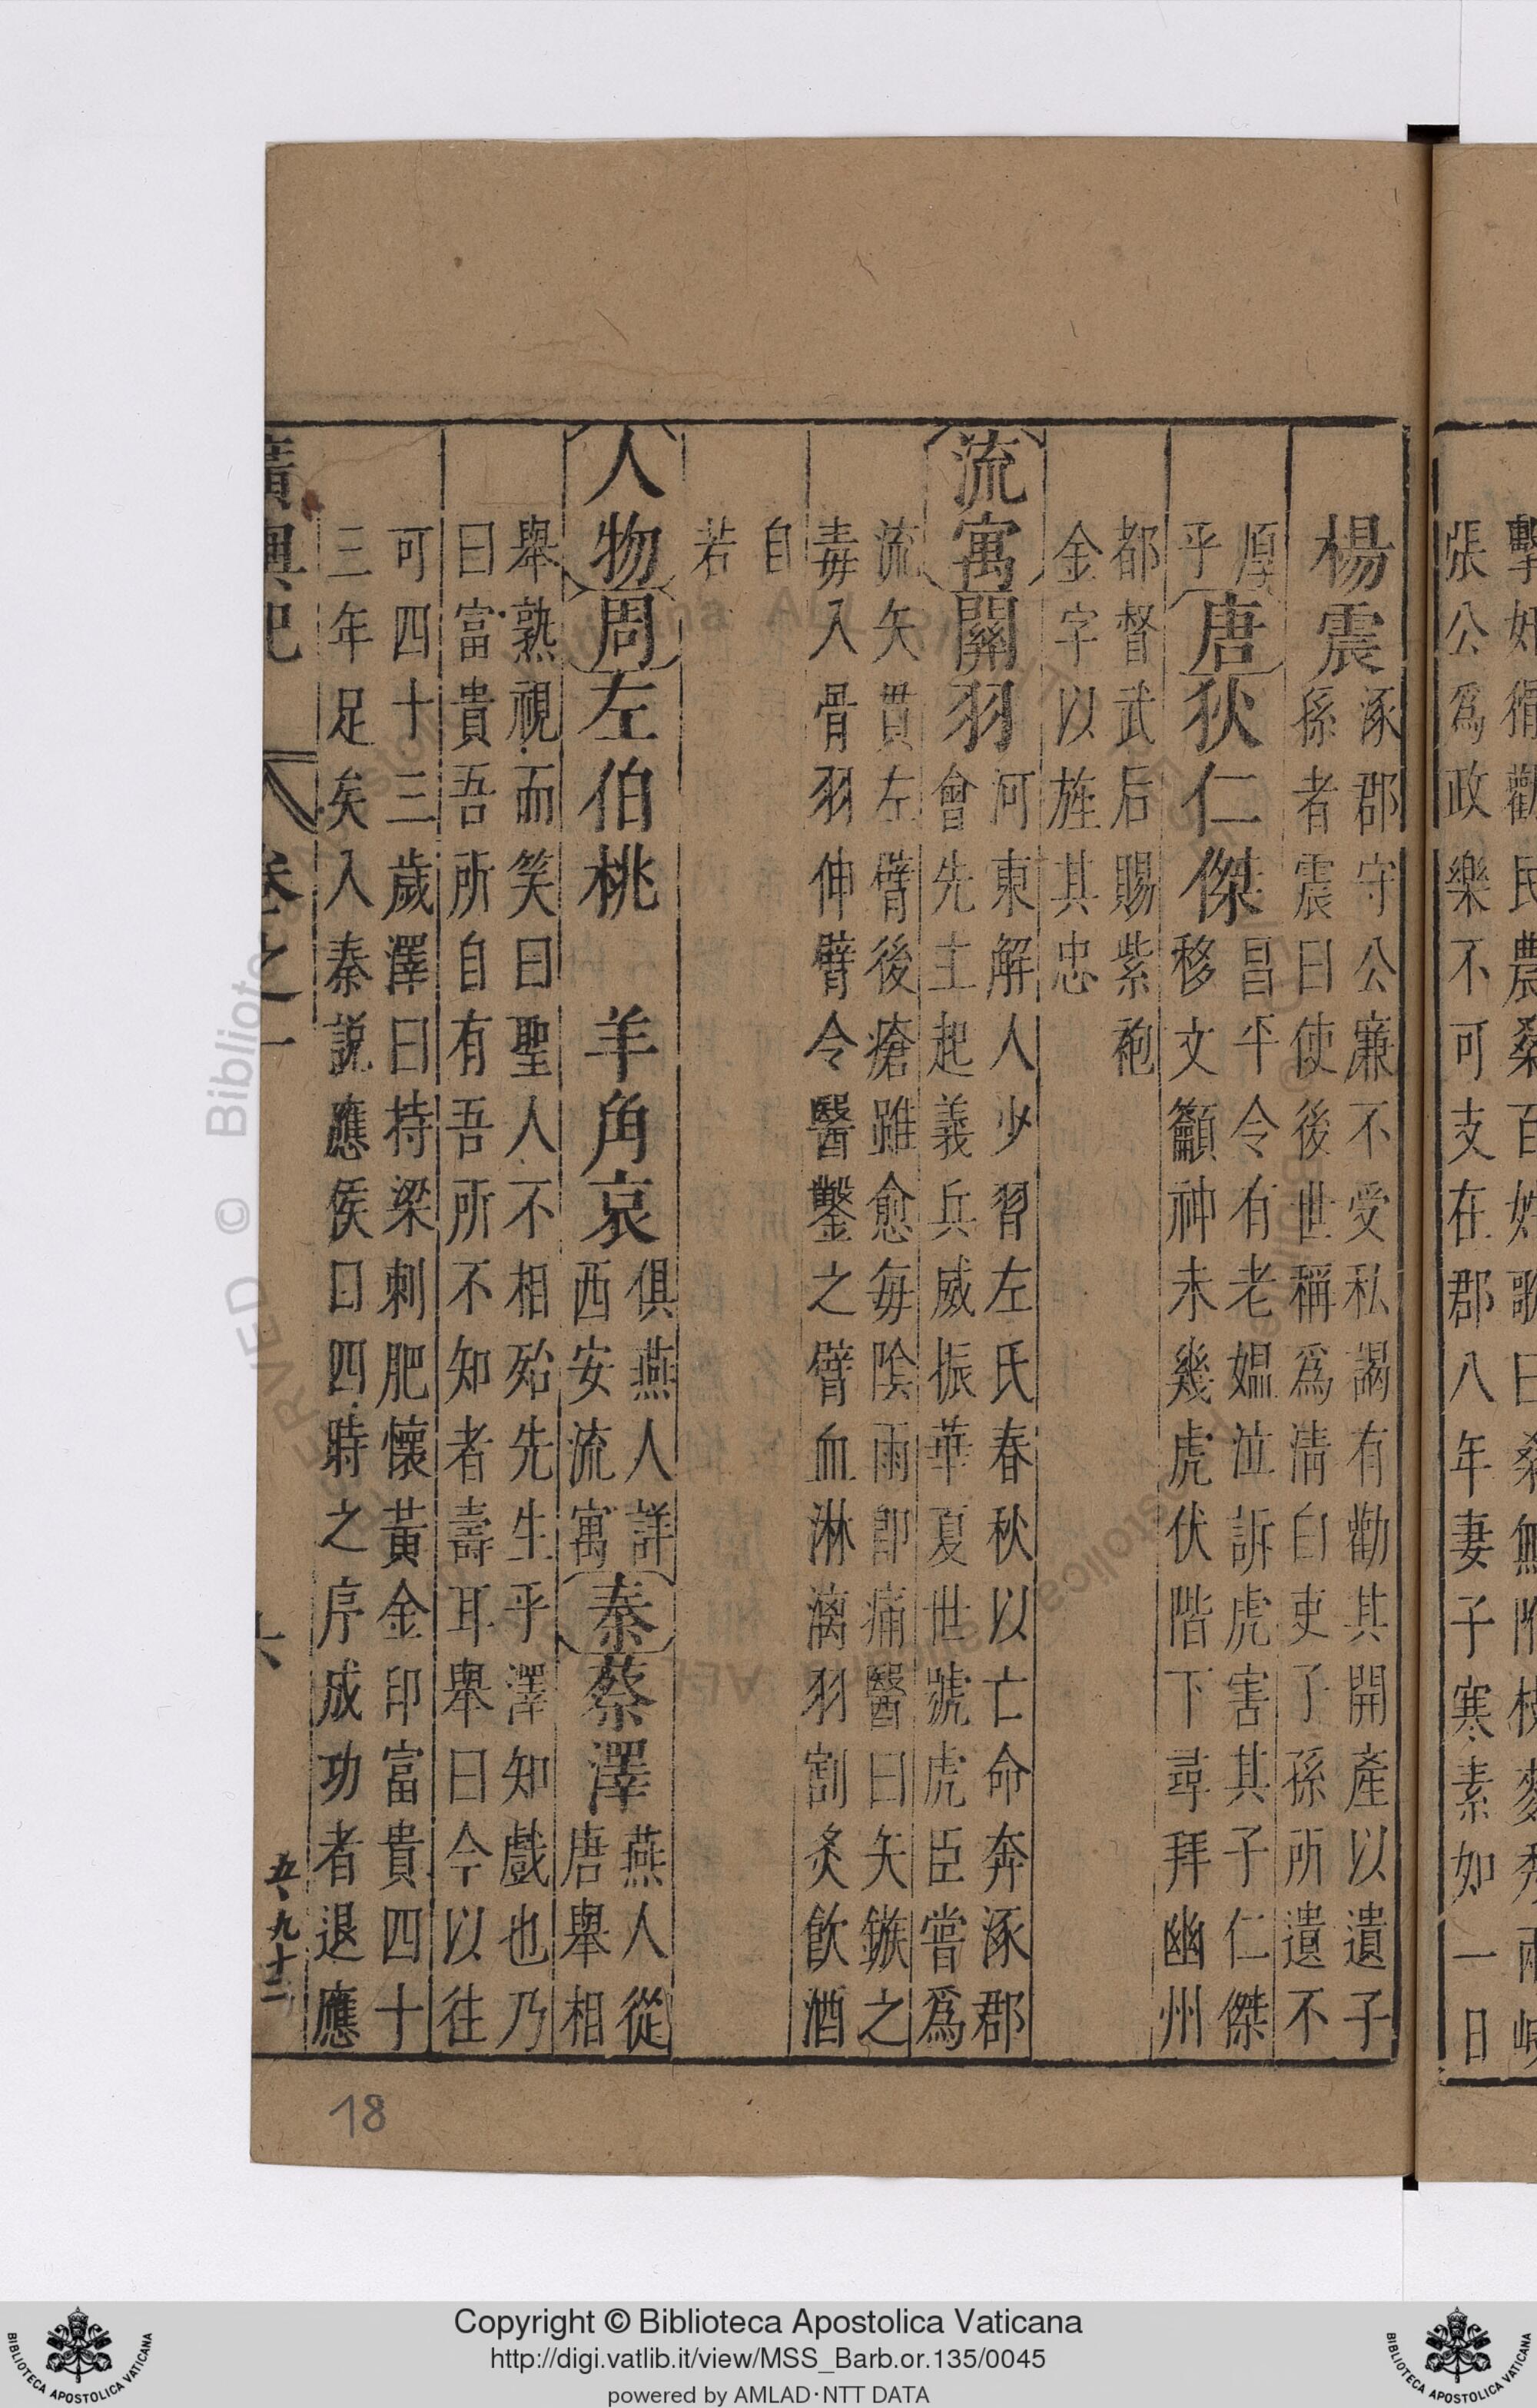 張公爲政樂不可支在郡八年妻子寒素如一日
楊震
涿郡守公廉不受私謁有勸其開產以遺子
孫者震曰使後世稱爲清白吏子孫所遺不
厚
乎
唐狄仁傑
昌平令有老媪泣訴虎害其子仁傑
移文籲神未幾虎伏階下尋拜幽州
都督武后賜紫袍
金字以旌其忠
流寓關羽
河東解人少習左氏春秋以亡命奔涿郡
會先主起義兵威振華夏世號虎臣嘗爲
流矢貫左臂後瘡雖愈每陰雨即痛醫曰矢鏃之
毒入骨羽伸臂令醫鑿之臂血淋漓羽割炙飲酒
自
若
人物周左伯桃 羊角哀
俱燕人詳
西安流寓
秦蔡澤
燕人從
唐舉相
舉熟視而笑曰聖人不相殆先生乎澤知戲也乃
曰富貴吾所自有吾所不知者壽耳舉曰今以往
可四十三歲澤曰持梁刺肥懷黃金印富貴四十
三年足矣入秦說應侯曰四時之序成功者退應
卷之一
五、九十二
18
© Biblioteca Apostolica Vaticana ALL RIGHTS RESERVED
Copyright © Biblioteca Apostolica Vaticana
http://digi.vatlib.it/view/MSS_Barb.or.135/0045
powered by AMLAD·NTT DATA
BIBLIOTECA APOSTOLICA VATICANA
BIBLIOTECA APOSTOLICA VATICANA